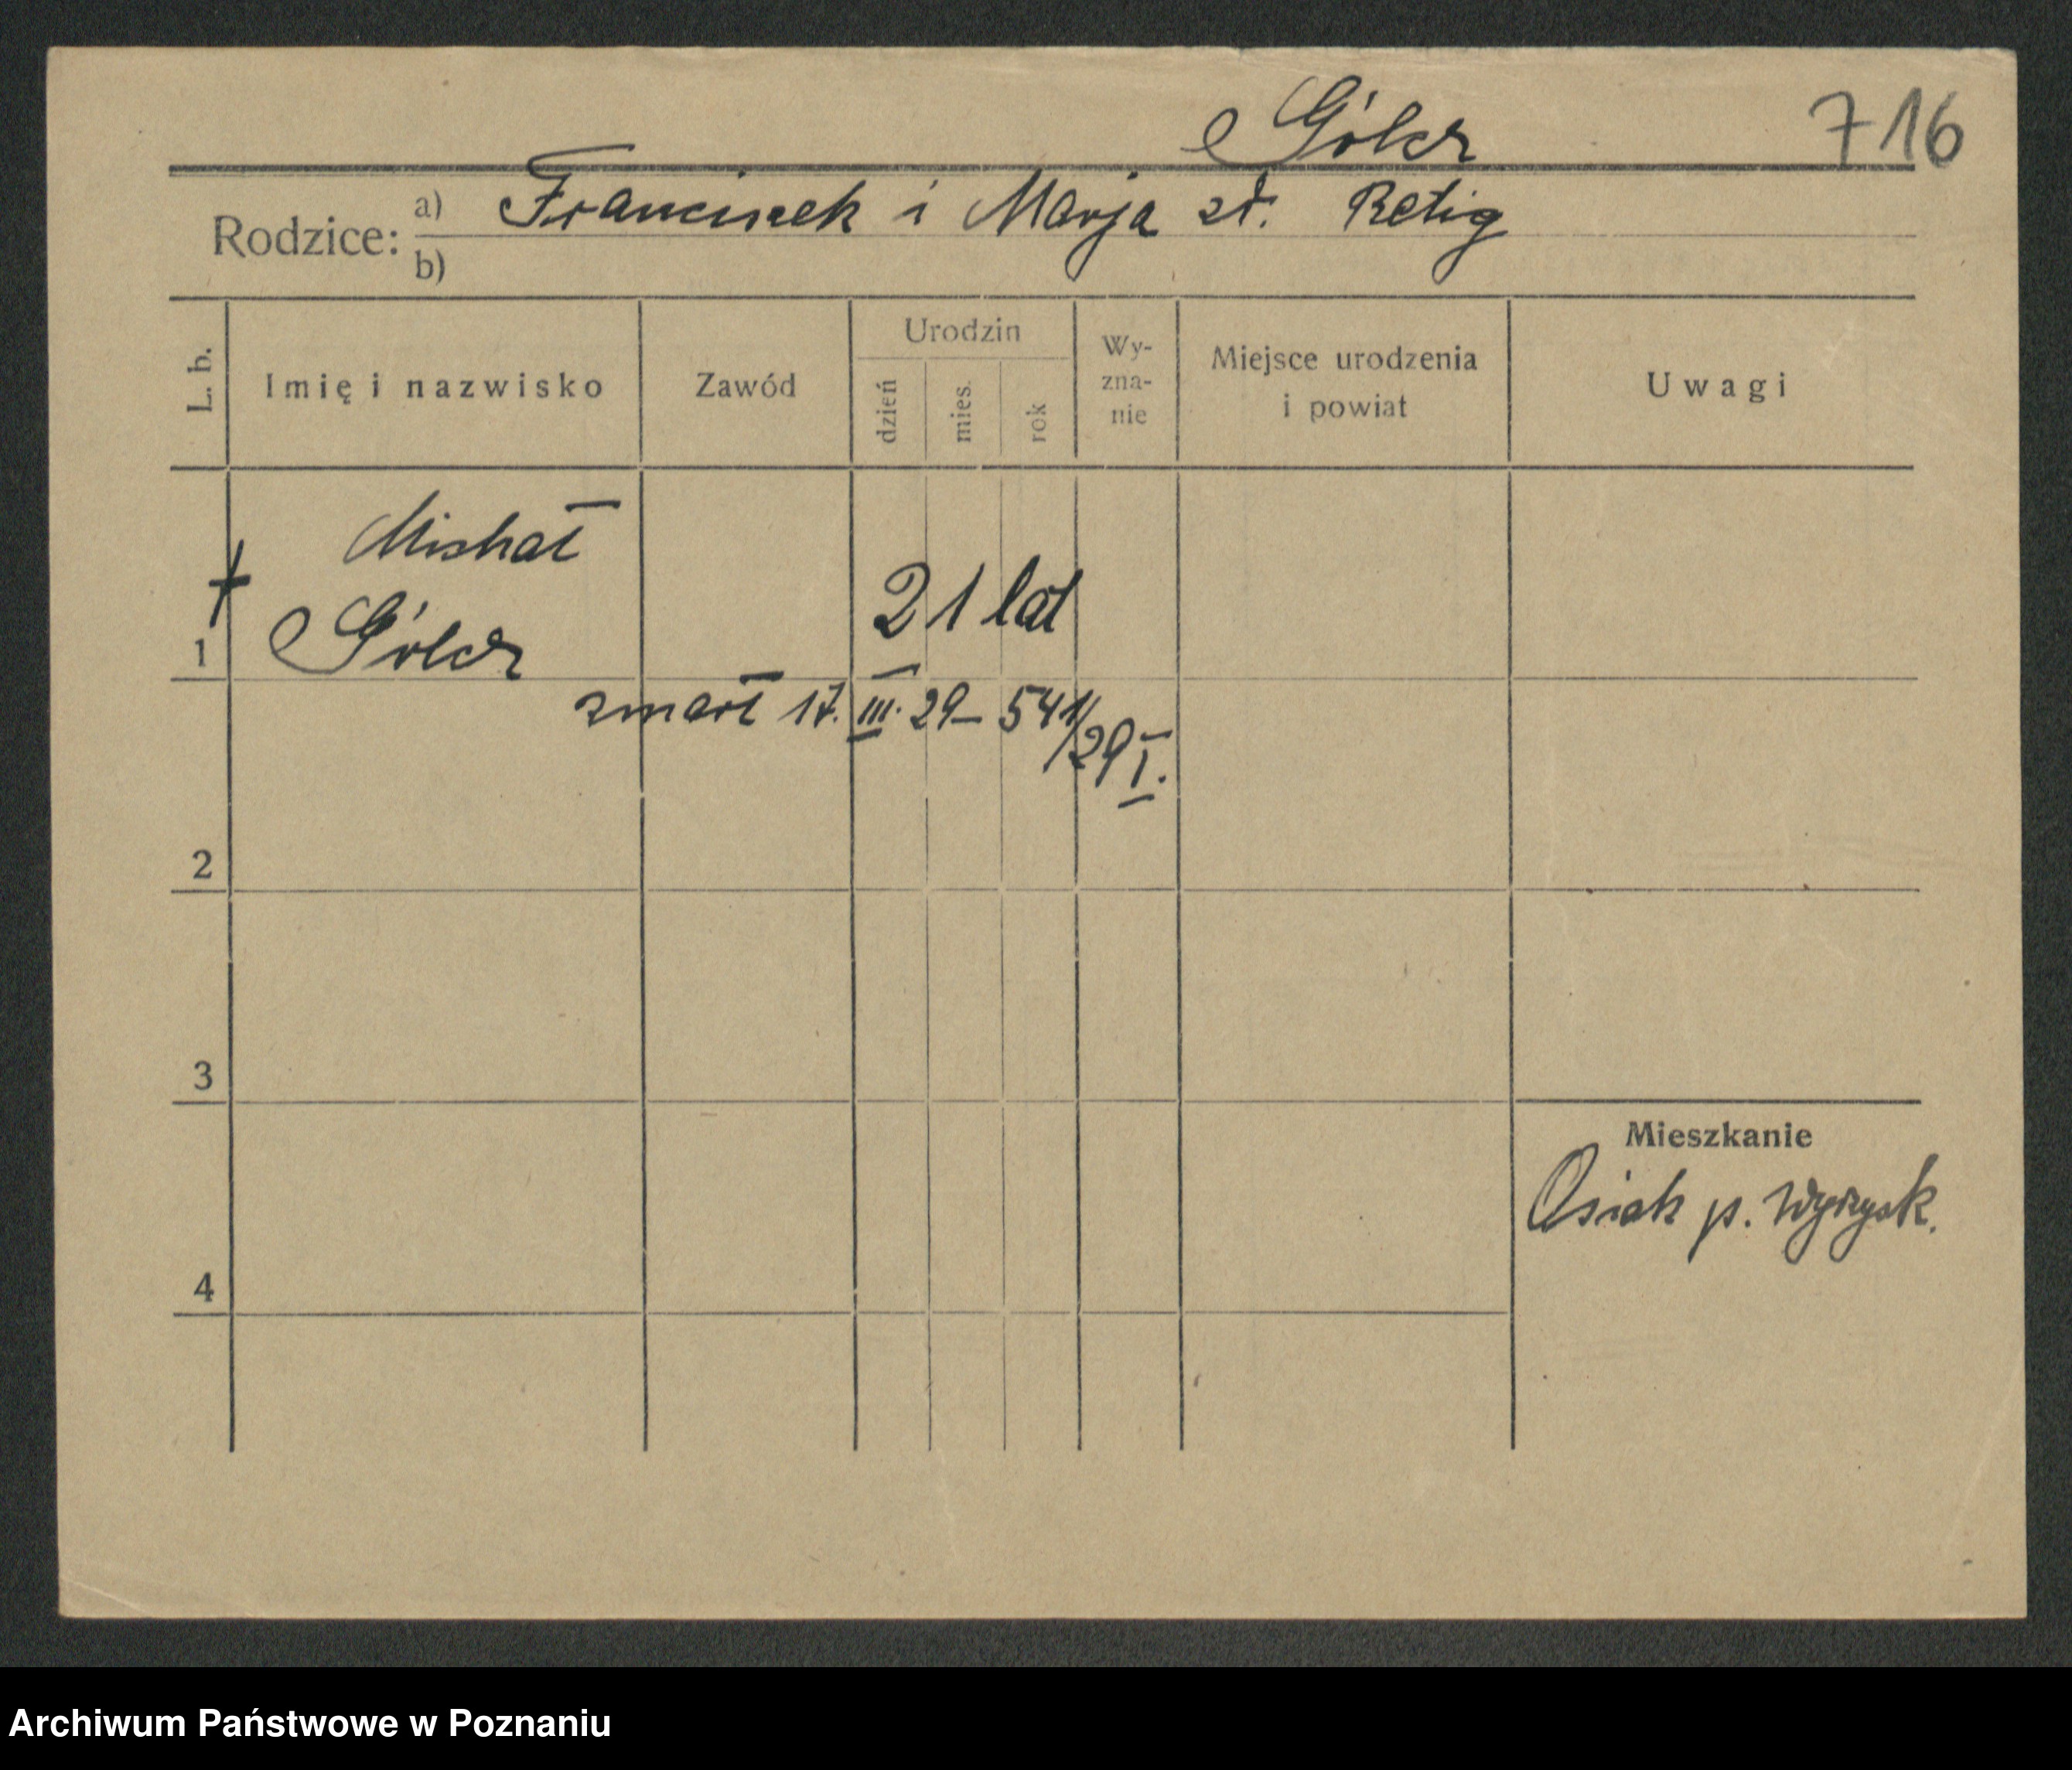 Gólcz 716
Rodzice: a) Franciszek i Marja zd. Retig
b)
L. b. Imię i nazwisko Zawód Urodzin dzień mies. rok Wy-zna-nie Miejsce urodzenia i powiat Uwagi
Michał
† 21 lat
1 Gólcz
zmarł 17. III. 29 – 541/29 I.
2
3
Mieszkanie
Osiek p. Wyrzysk.
4
Archiwum Państwowe w Poznaniu